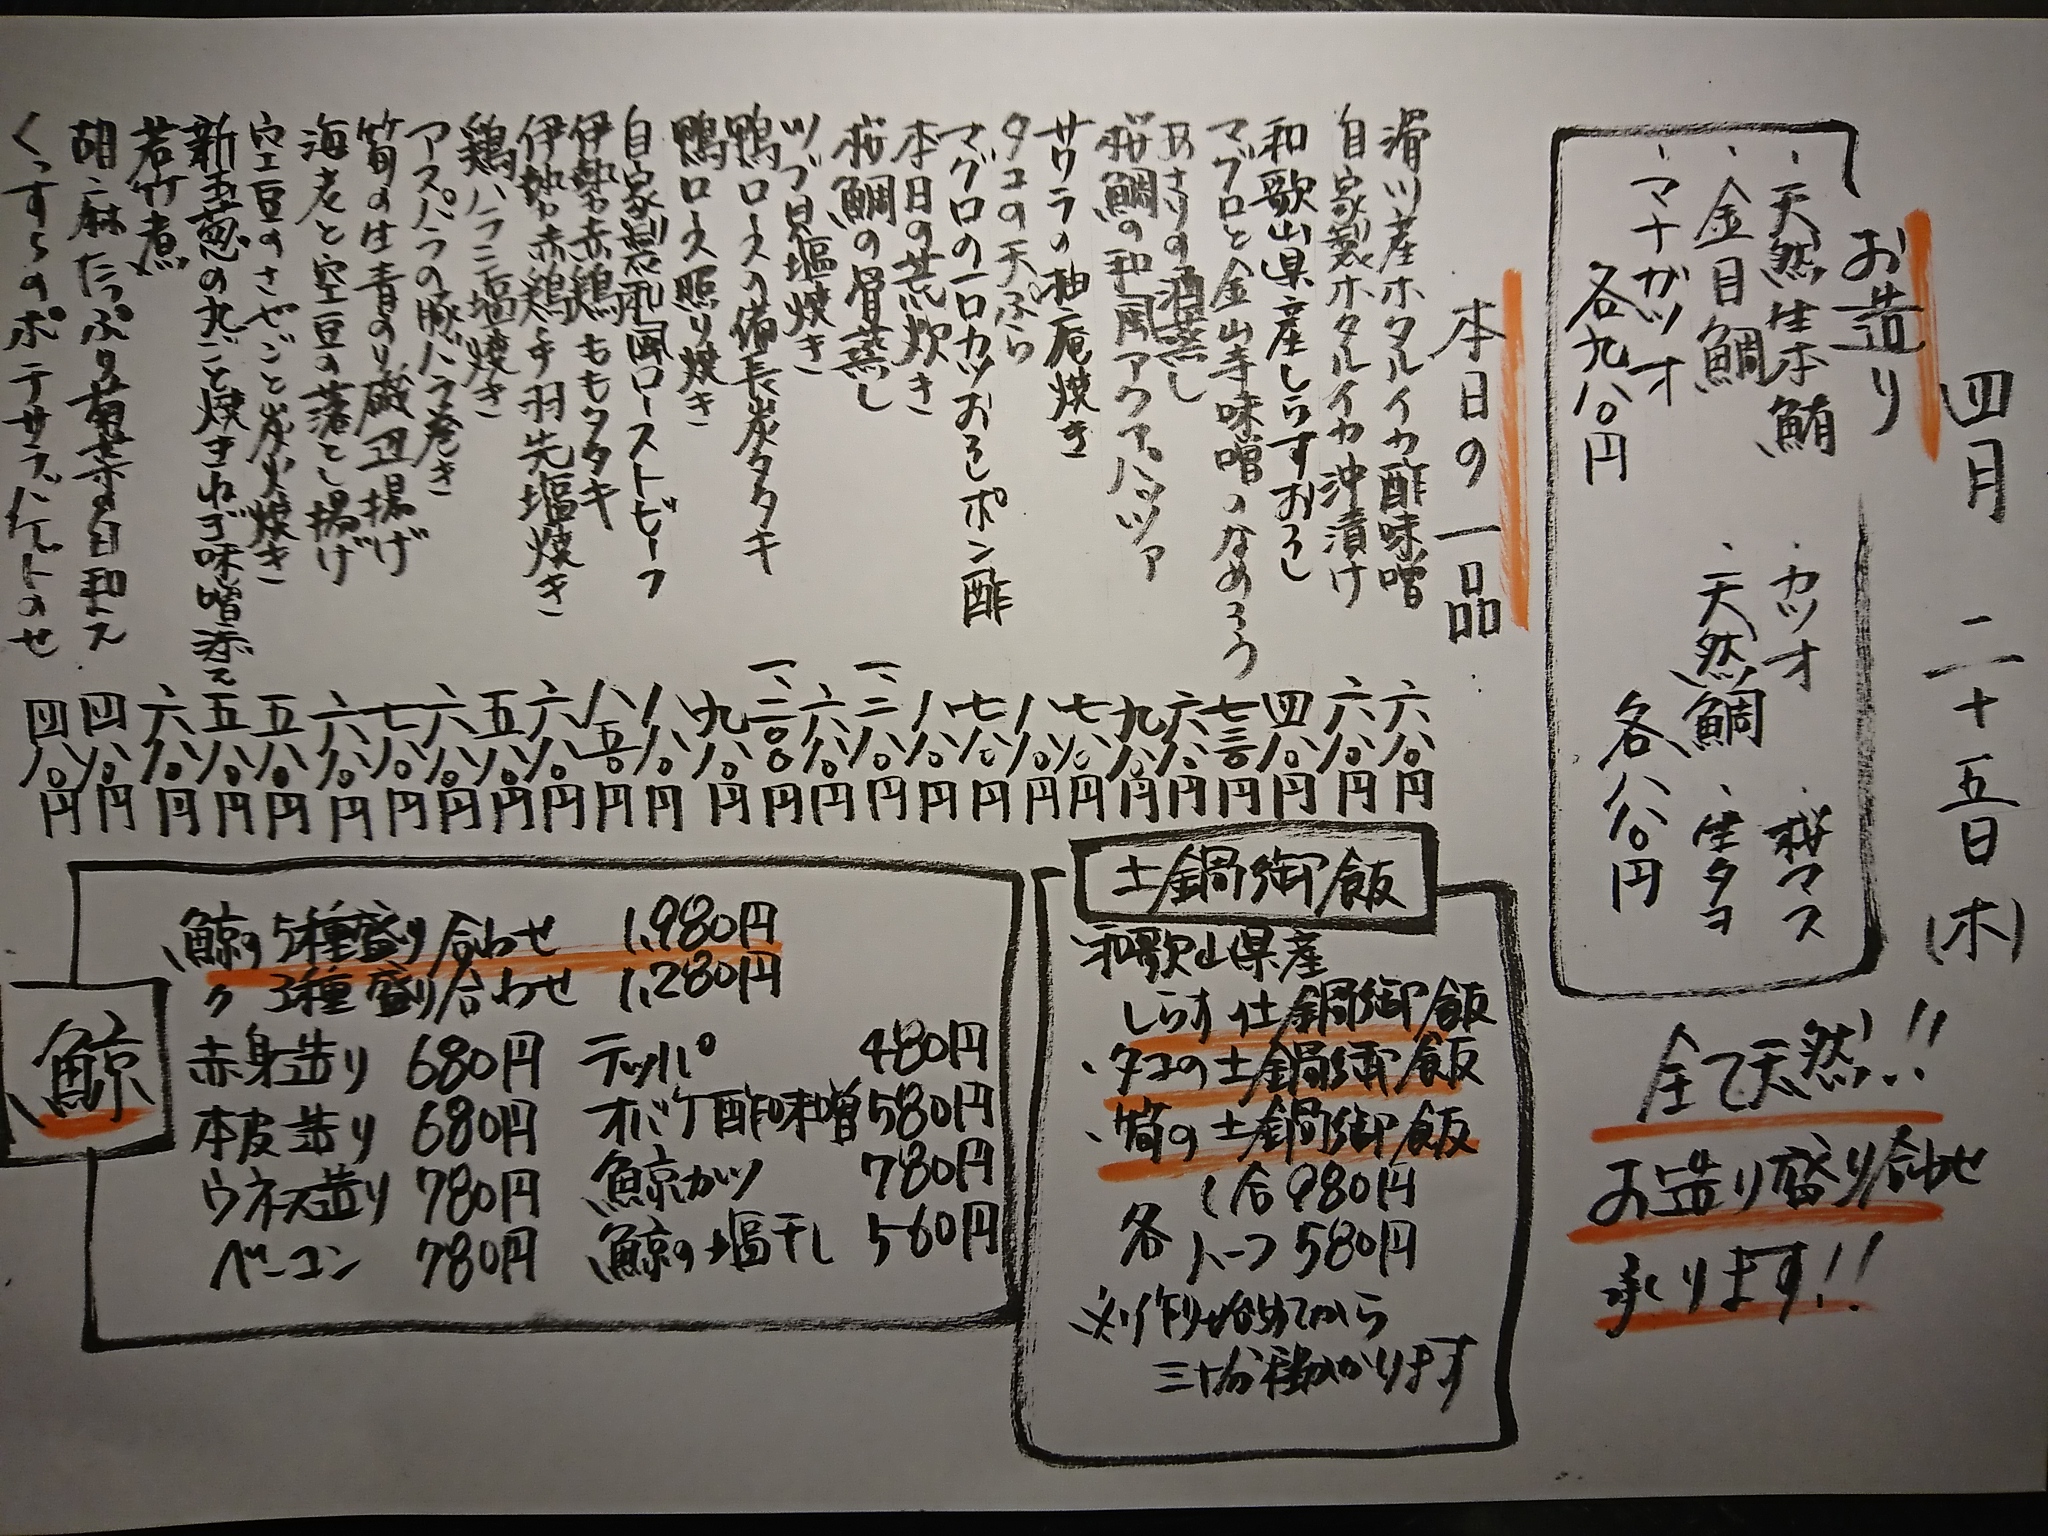 四月 二十五日(木)
お造り
・天然生本鮪 ・カツオ ・桜マス
・金目鯛 ・天然鯛 ・生タコ
・マナガツオ
各九八〇円 各八八〇円
全て天然!!
お造り盛り合わせ
承ります!!
本日の一品
滑川産ホタルイカ酢味噌 六八〇円
自家製ホタルイカ沖漬け 六八〇円
和歌山県産しらすおろし 四八〇円
マグロと金山寺味噌のなめろう 七三〇円
あさりの酒蒸し 六八〇円
桜鯛の和風アクアパッツァ 九八〇円
サワラの柚庵焼き 七八〇円
タコの天ぷら 八八〇円
マグロの一口カツおろしポン酢 七八〇円
本日の荒炊き 八八〇円
桜鯛の骨蒸し 一、二八〇円
ツブ貝塩焼き 六八〇円
鴨ロースの備長炭タタキ 一、二〇〇円
鴨ロース照り焼き 九八〇円
自家製和風ローストビーフ 八八〇円
伊勢赤鶏ももタタキ 八五〇円
伊勢赤鶏手羽先塩焼き 六八〇円
鶏ハラミ塩焼き 五八〇円
アスパラの豚バラ巻き 六八〇円
筍の生青のり磯辺揚げ 七八〇円
海老と空豆の落とし揚げ 六八〇円
空豆のさやごと炭火焼き 五八〇円
新玉葱の丸ごと焼きねぎ味噌添え 五八〇円
若竹煮 六八〇円
胡麻たっぷり菊菜の白和え 四八〇円
くっすらのポテサラバケットのせ 四八〇円
土鍋御飯
・和歌山県産
しらす 土鍋御飯
・タコの土鍋御飯
・筍の土鍋御飯
各 1合 980円
ハーフ 580円
※作り始めてから
三十分程かかります
鯨
鯨の5種盛り合わせ 1,980円
〃 3種盛り合わせ 1,280円
赤身造り 680円 テッパ 480円
本皮造り 680円 オバケ酢味噌 580円
ウネス造り 780円 鯨カツ 780円
ベーコン 780円 鯨の塩干し 560円